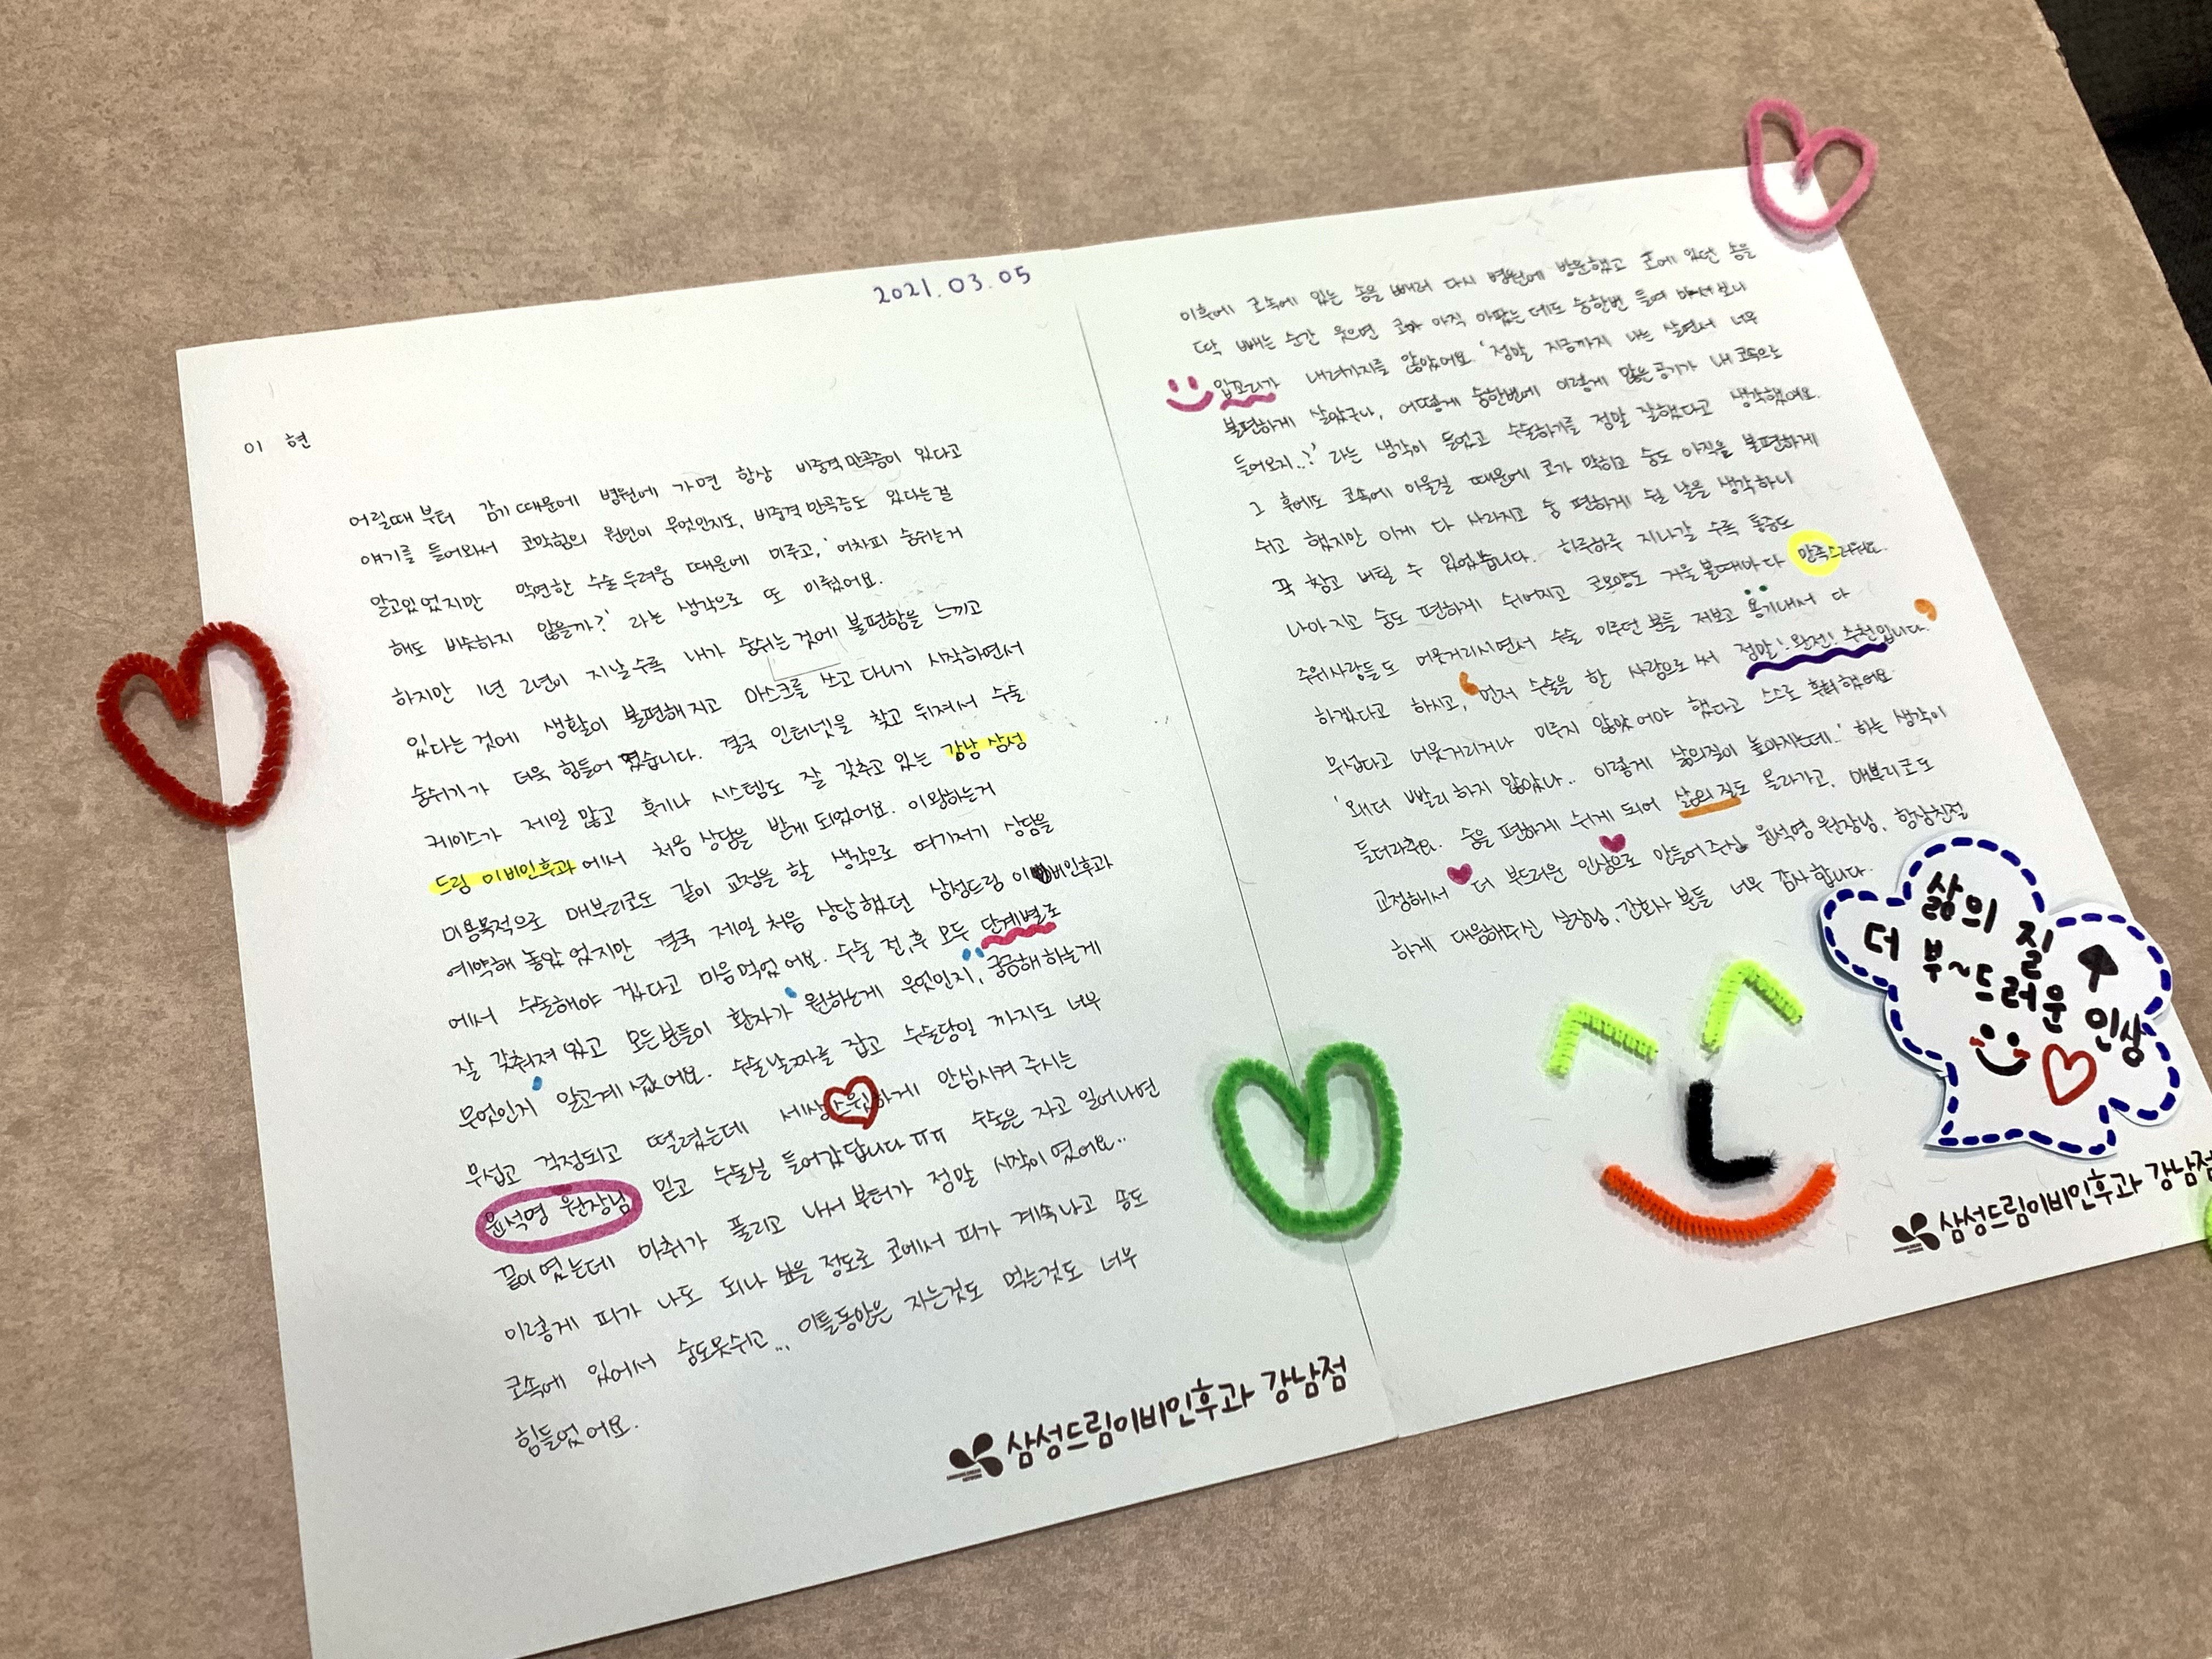 2021.03.05
이 현
어릴때 부터 감기 때문에 병원에 가면 항상 비중격만곡증이 있다고
얘기를 들어와서 코막힘의 원인이 무엇인지도, 비중격만곡증도 있다는걸
알고있었지만 막연한 수술 두려움 때문에 미루고, '어차피 숨쉬는거
해도 비슷하지 않을까?' 라는 생각으로 또 미뤘어요.
하지만 1년 2년이 지날수록 내가 숨쉬는 것에 불편함을 느끼고
있다는 것에 생활이 불편해지고 마스크를 쓰고 다니기 시작하면서
숨쉬기가 더욱 힘들어 졌습니다. 결국 인터넷을 찾고 뒤져서 수술
케이스가 제일 많고 후기나 시스템도 잘 갖추고 있는 강남 삼성
드림 이비인후과에서 처음 상담을 받게 되었어요. 이왕하는거
미용목적으로 매부리코도 같이 교정을 할 생각으로 여기저기 상담을
예약해 놓았었지만 결국 제일 처음 상담했던 삼성드림 이비인후과
에서 수술해야 겠다고 마음먹었어요. 수술 전,후 모두 단계별로
잘 갖춰져 있고 모든분들이 환자가 원하는게 무엇인지, 궁금해하는게
무엇인지 알고계셨어요. 수술날짜를 잡고 수술당일 까지도 너무
무섭고 걱정되고 떨렸는데 세상스윗하게 안심시켜 주시는
윤석영 원장님 믿고 수술실 들어갔답니다ㅠㅠ 수술은 자고 일어나면
끝이였는데 마취가 풀리고 나서부터가 정말 시작이였어요..
이렇게 피가 나도 되나 싶을 정도로 코에서 피가 계속나고 솜도
코속에 있어서 숨도못쉬고... 이틀동안은 자는것도 먹는것도 너무
힘들었어요.
삼성드림이비인후과 강남점
이후에 코속에 있는 솜을 빼러 다시 병원에 방문했고 코에 있던 솜을
딱 빼는 순간 웃으면 코가 아직 아팠는데도 숨한번 들여 마셔보니
입꼬리가 내려가지를 않았어요. '정말 지금까지 나는 살면서 너무
불편하게 살았구나, 어떻게 숨한번에 이렇게 많은 공기가 내 코속으로
들어오지..?' 라는 생각이 들었고 수술하기를 정말 잘했다고 생각했어요.
그 후에도 코속에 이물질 때문에 코가 막히고 숨도 아직은 불편하게
쉬고 했지만 이게 다 사라지고 숨 편하게 쉴 날을 생각하니
꾹 참고 버틸 수 있었습니다. 하루하루 지나갈 수록 통증도
나아지고 숨도 편하게 쉬어지고 코모양도 거울볼때마다 만족스러워요.
주위사람들도 머뭇거리시면서 수술 미루던 분들 저보고 용기내서 다
하겠다고 하시고, '먼저 수술을 한 사람으로써 정말! 완전! 추천입니다.'
무섭다고 머뭇거리거나 미루지 않았어야 했다고 스스로 후회했어요
'왜더 빨리 하지 않았나.. 이렇게 삶의질이 높아지는데..' 하는 생각이
들더라구요. 숨을 편하게 쉬게 되어 삶의 질도 올라가고, 매부리코도
교정해서 더 부드러운 인상으로 만들어주신 윤석영 원장님, 항상친절
하게 대응해주신 실장님, 간호사 분들 너무 감사합니다.
삶의 질
더 부~드러운 인상
삼성드림이비인후과 강남점